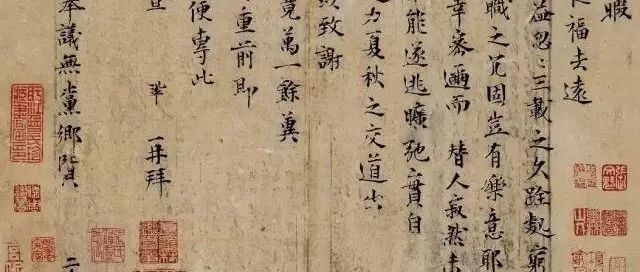 暇
福去遠
益忽忽三載之久跧處窮
職之冗固豈有樂意耶
幸密邇而替人寂然未
能遂逃曠弛實自
夏秋之交道出
以致謝
竟萬一餘冀
重前即
便專此
宣 鞏再拜
奉議無黨鄉賢 二十